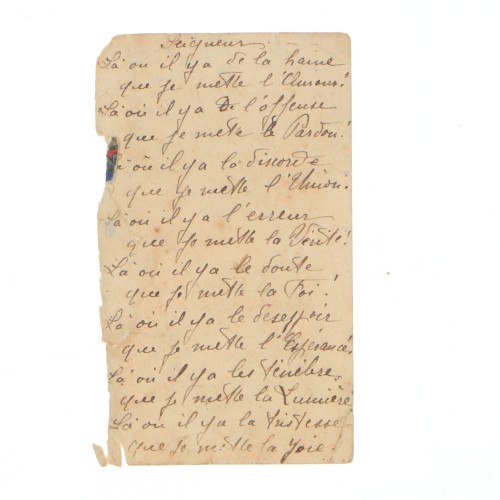 Seigneur
Là où il y a de la haine
que je mette l'Amour!
Là où il y a de l'offense
que je mette le Pardon!
Là où il y a la discorde
que je mette l'Union!
Là où il y a l'erreur
que je mette la Vérité!
Là où il y a le doute
que je mette la Foi!
Là où il y a le desespoir
que je mette l'Espérance
Là où il y a les ténèbres
que je mette la Lumière
Là où il y a la tristesse
que je mette la joie!